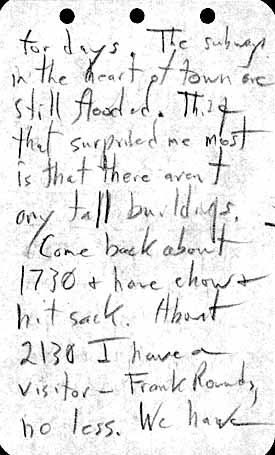 for days. The subways
in the heart of town are
still flooded. Thing
that surprised me most
is that there aren't
any tall buildings.
Come back about
1730 + have chow +
hit sack. About
2130 I have a
visitor - Frank Rounds,
no less. We have